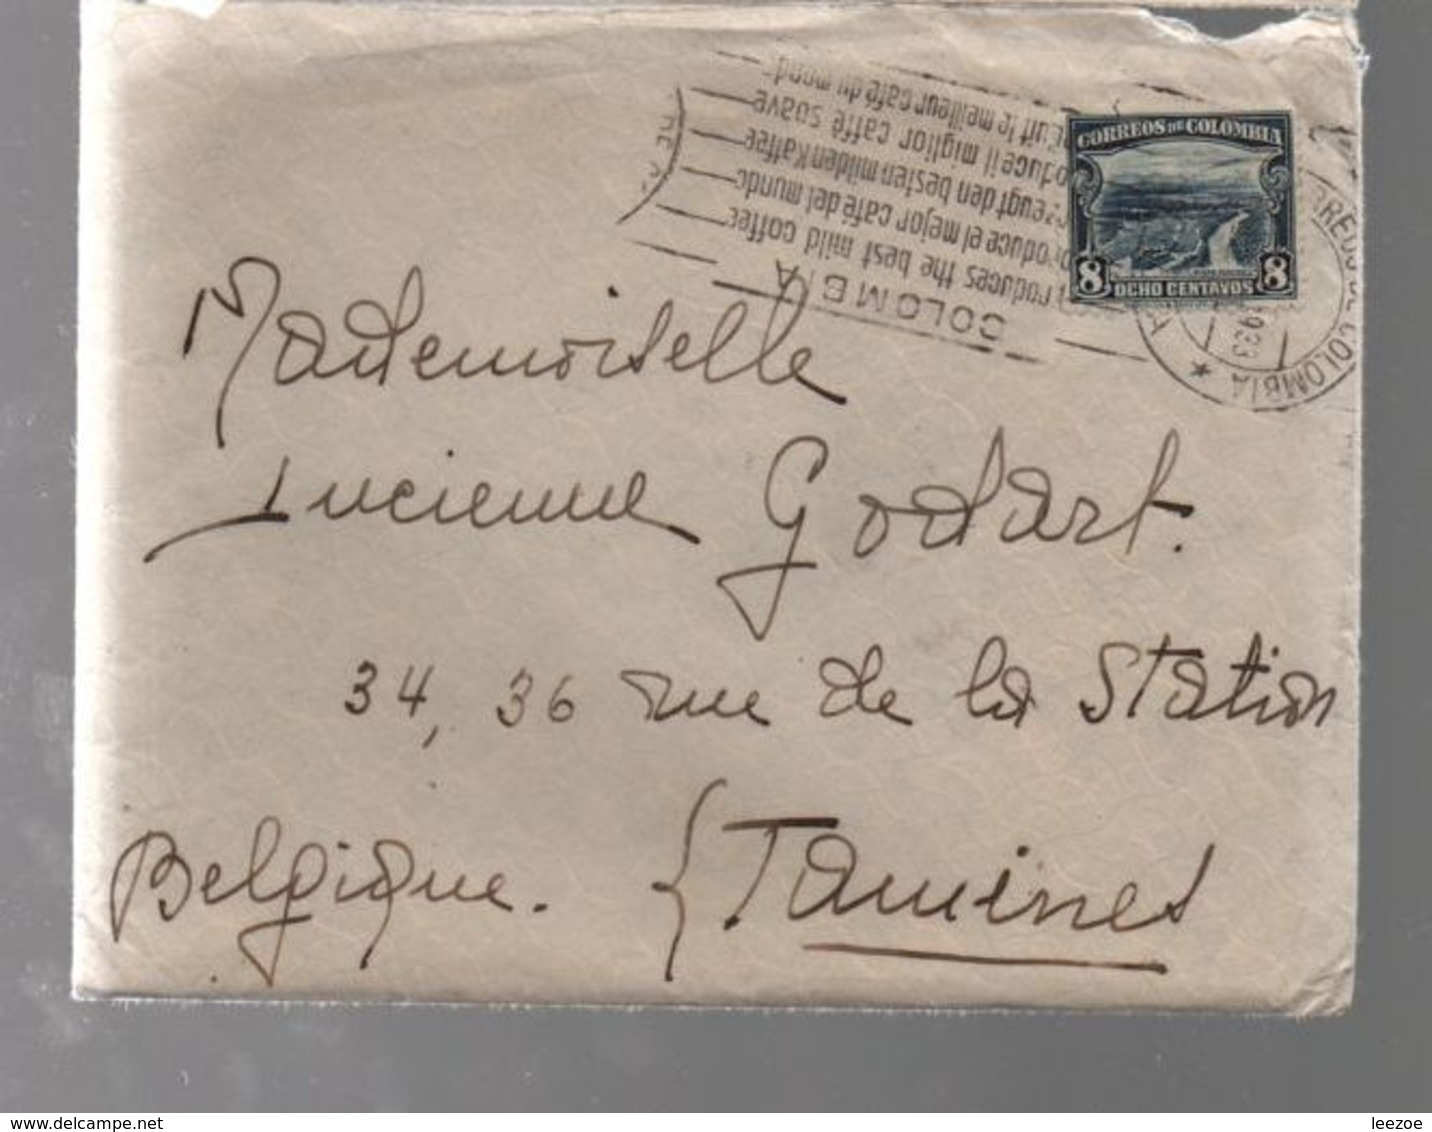 COLOMBIA
produces the best mild coffee
produce el mejor café del mundo
den besten milden Kaffee
il miglior caffé soave
le meilleur café du mond
CORREOS DE COLOMBIA
8 OCHO CENTAVOS 8
COLOMBIA
1933
Mademoiselle
Lucienne Godart.
34, 36 rue de la Station
Belgique. { Tamines
delcampe.net
leezoe